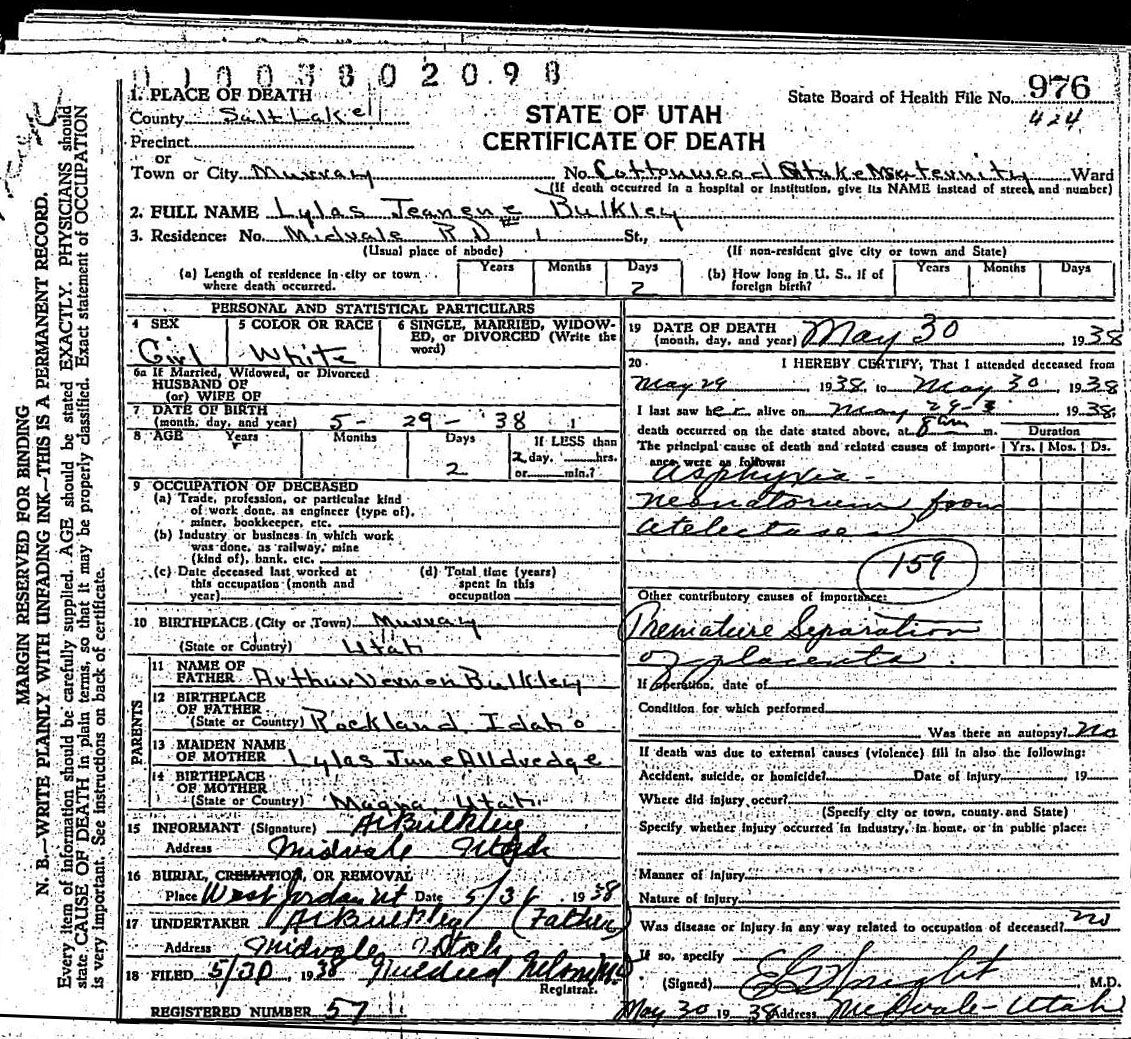 0 1 0 0 3 8 0 2 0 9 8
1. PLACE OF DEATH
County Salt Lake
Precinct
or
Town or City Murray
STATE OF UTAH
CERTIFICATE OF DEATH
State Board of Health File No. 976
424
No. Cottonwood Stake Maternity Ward
(If death occurred in a hospital or institution, give its NAME instead of street and number)
2. FULL NAME Lylas Jeanene Bulkley
3. Residence: No. Midvale R D 1 St.,
(Usual place of abode) (If non-resident give city or town and State)
(a) Length of residence in city or town where death occurred. Years Months Days 2
(b) How long in U. S., if of foreign birth? Years Months Days
PERSONAL AND STATISTICAL PARTICULARS
4 SEX Girl
5 COLOR OR RACE White
6 SINGLE, MARRIED, WIDOWED, OR DIVORCED (Write the word)
6a If Married, Widowed, or Divorced
HUSBAND OF
(or) WIFE OF
7 DATE OF BIRTH
(month, day, and year) 5 - 29 - '38
8 AGE Years Months Days 2
If LESS than
2 day, hrs.
or min.?
9 OCCUPATION OF DECEASED
(a) Trade, profession, or particular kind
of work done, as engineer (type of),
miner, bookkeeper, etc.
(b) Industry or business in which work
was done, as railway, mine
(kind of), bank, etc.
(c) Date deceased last worked at
this occupation (month and
year)
(d) Total time (years)
spent in this
occupation
10 BIRTHPLACE (City or Town) Murray
(State or Country) Utah
PARENTS
11 NAME OF
FATHER Arthur Vernon Bulkley
12 BIRTHPLACE
OF FATHER
(State or Country) Rockland, Idaho
13 MAIDEN NAME
OF MOTHER Lylas June Alldredge
14 BIRTHPLACE
OF MOTHER
(State or Country) Magna, Utah
15 INFORMANT (Signature) Bulkley
Address Midvale Utah
16 BURIAL, CREMATION, OR REMOVAL
Place West Jordan Ut Date 5/31 1938
17 UNDERTAKER Bulkley (Father)
Address Midvale Utah
18 FILED 5/30, 1938 Mildred
Registrar.
REGISTERED NUMBER 57
19 DATE OF DEATH
(month, day, and year) May 30 1938
20 I HEREBY CERTIFY, That I attended deceased from
May 29 1938 to May 30 1938
I last saw her alive on May 29 1938
death occurred on the date stated above, at 8 am m.
Duration
The principal cause of death and related causes of importance were as follows:
Yrs. Mos. Ds.
Asphyxia -
neonatorum from
atelectases
159
Other contributory causes of importance:
Premature Separation
of placenta
If operation, date of
Condition for which performed
Was there an autopsy? No
If death was due to external causes (violence) fill in also the following:
Accident, suicide, or homicide? Date of injury 19
Where did injury occur?
(Specify city or town, county and State)
Specify whether injury occurred in industry, in home, or in public place:
Manner of injury
Nature of injury
Was disease or injury in any way related to occupation of deceased? no
If so, specify
(Signed) Wright M.D.
May 30 1938 Address Midvale - Utah
MARGIN RESERVED FOR BINDING
N. B.—WRITE PLAINLY WITH UNFADING INK—THIS IS A PERMANENT RECORD.
Every item of information should be carefully supplied. AGE should be stated EXACTLY. PHYSICIANS should
state CAUSE OF DEATH in plain terms, so that it may be properly classified. Exact statement of OCCUPATION
is very important. See instructions on back of certificate.